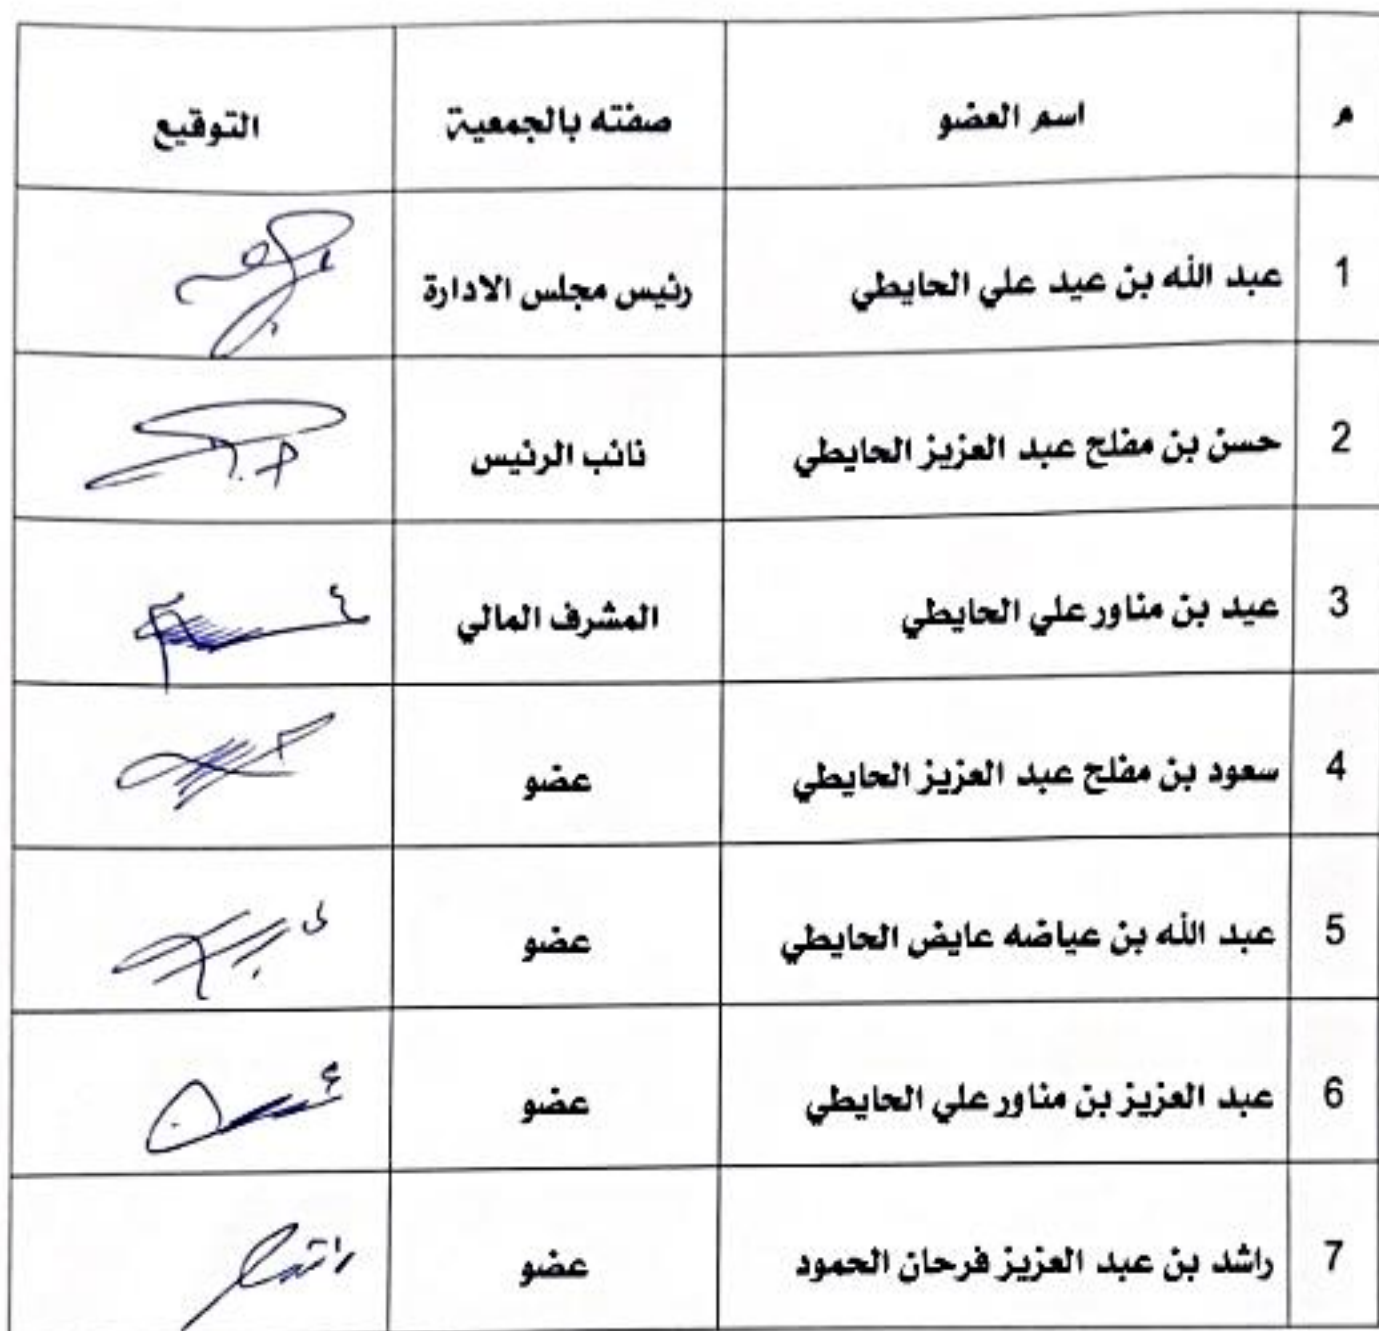 م اسم العضو صفته بالجمعية التوقيع
1 عبد الله بن عيد علي الحايطي رئيس مجلس الادارة
2 حسن بن مفلح عبد العزيز الحايطي نائب الرئيس
3 عيد بن مناور علي الحايطي المشرف المالي
4 سعود بن مفلح عبد العزيز الحايطي عضو
5 عبد الله بن عياضه عايض الحايطي عضو
6 عبد العزيز بن مناور علي الحايطي عضو
7 راشد بن عبد العزيز فرحان الحمود عضو